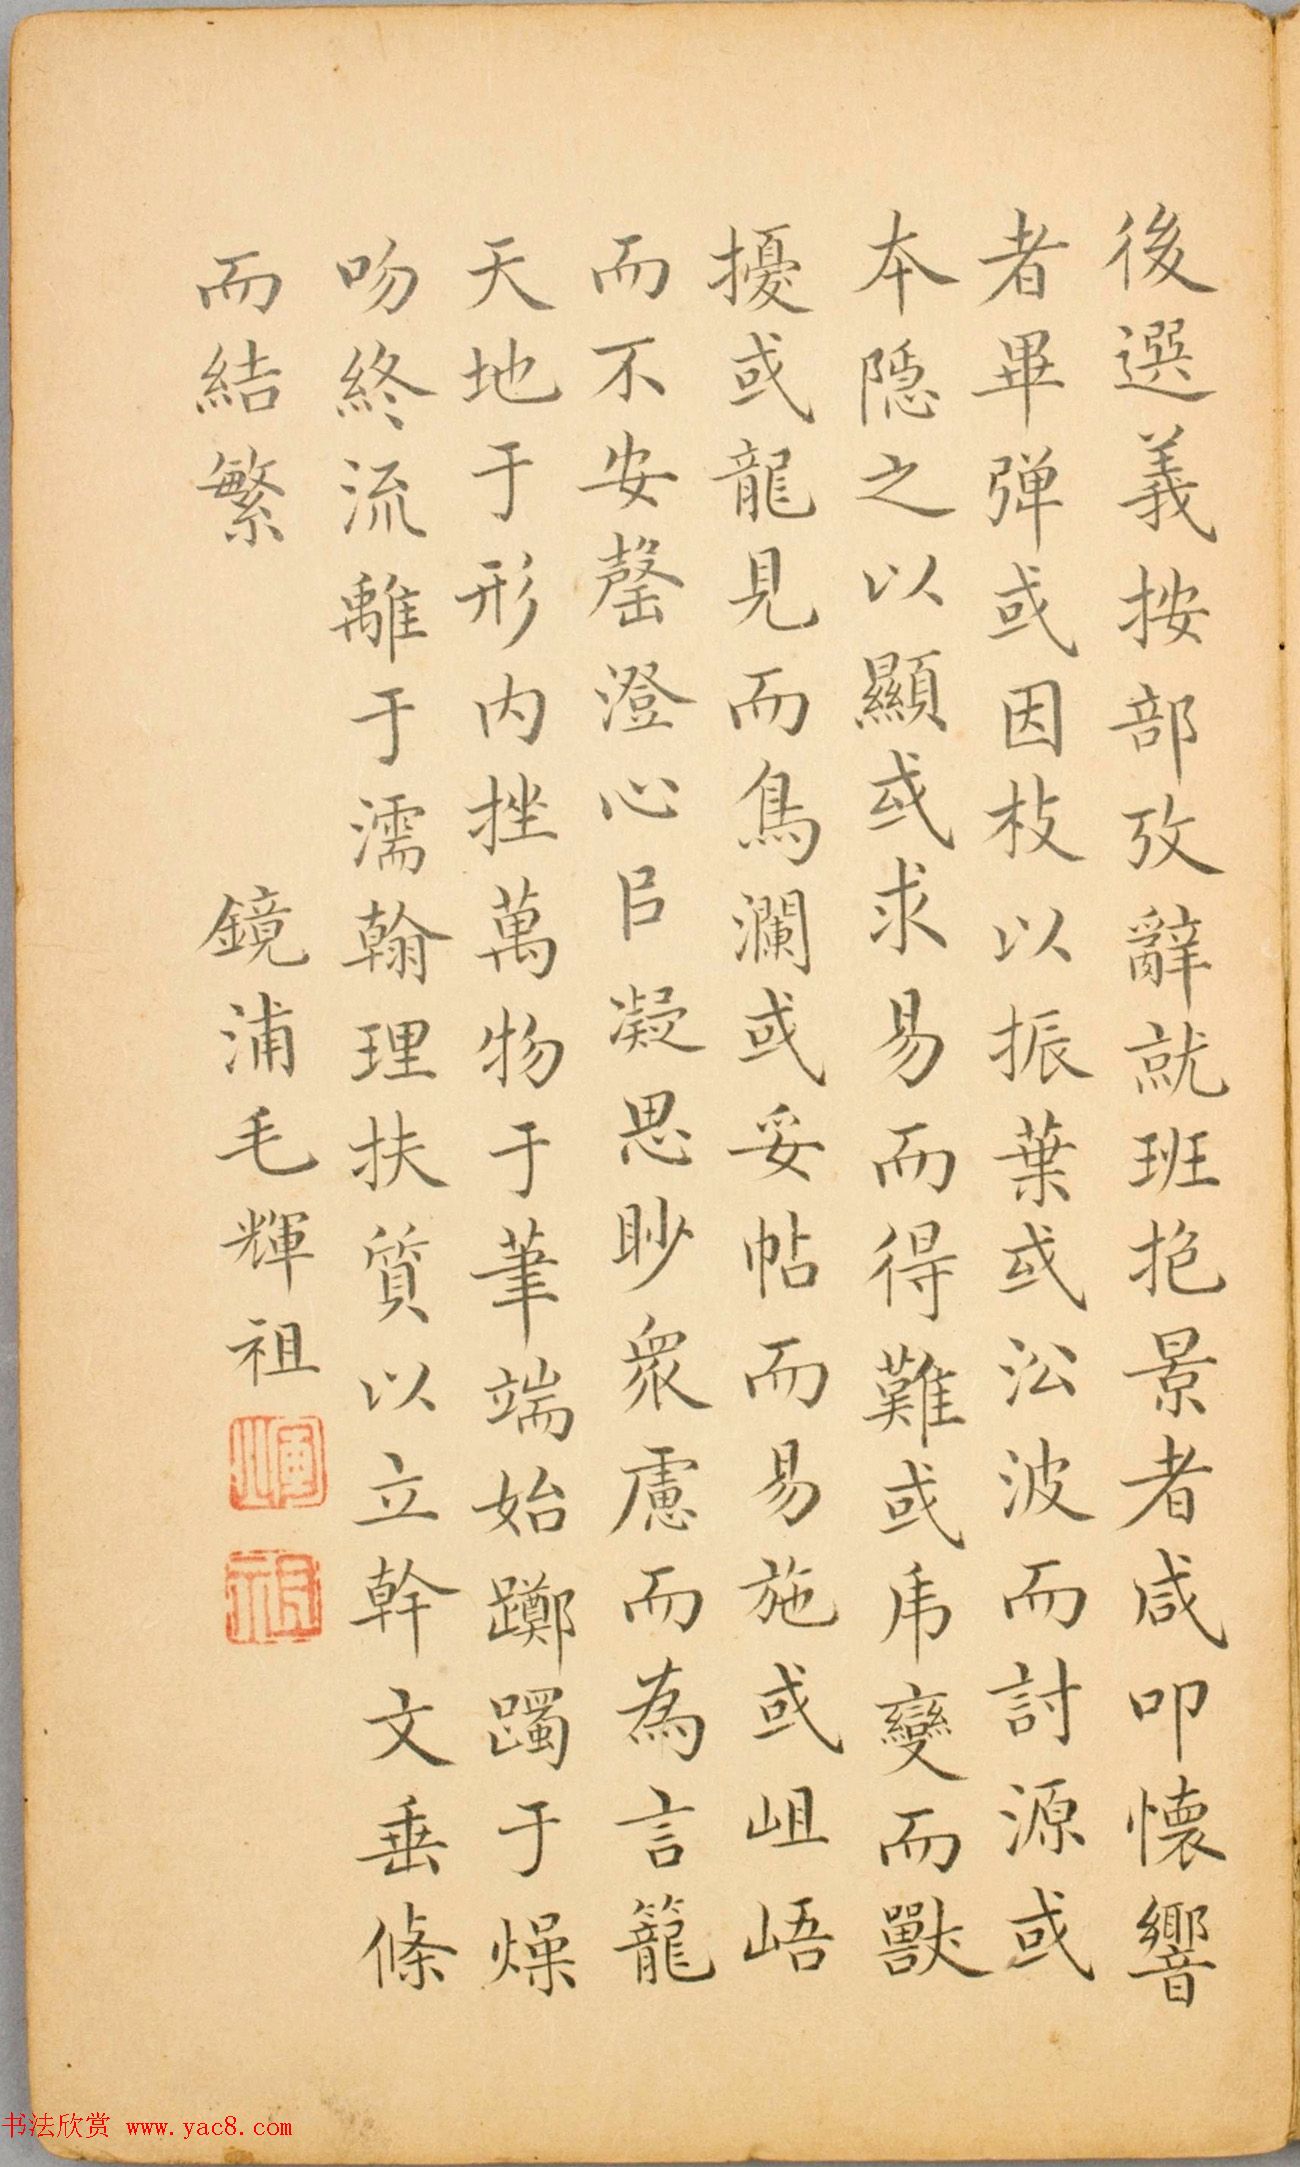 後選義按部攷辭就班抱景者咸叩懷響
者畢弹或因枝以振葉或沿波而討源或
本隠之以顯或求易而得難或乕變而獸
擾或龍見而鳥瀾或妥帖而易施或岨峿
而不安罄澄心㠯凝思眇衆慮而為言籠
天地于形内挫萬物于筆端始躑躅于燥
吻終流離于濡翰理扶質以立幹文垂條
而結繁
鏡浦毛輝祖
輝
祖
书法欣赏 www.yac8.com